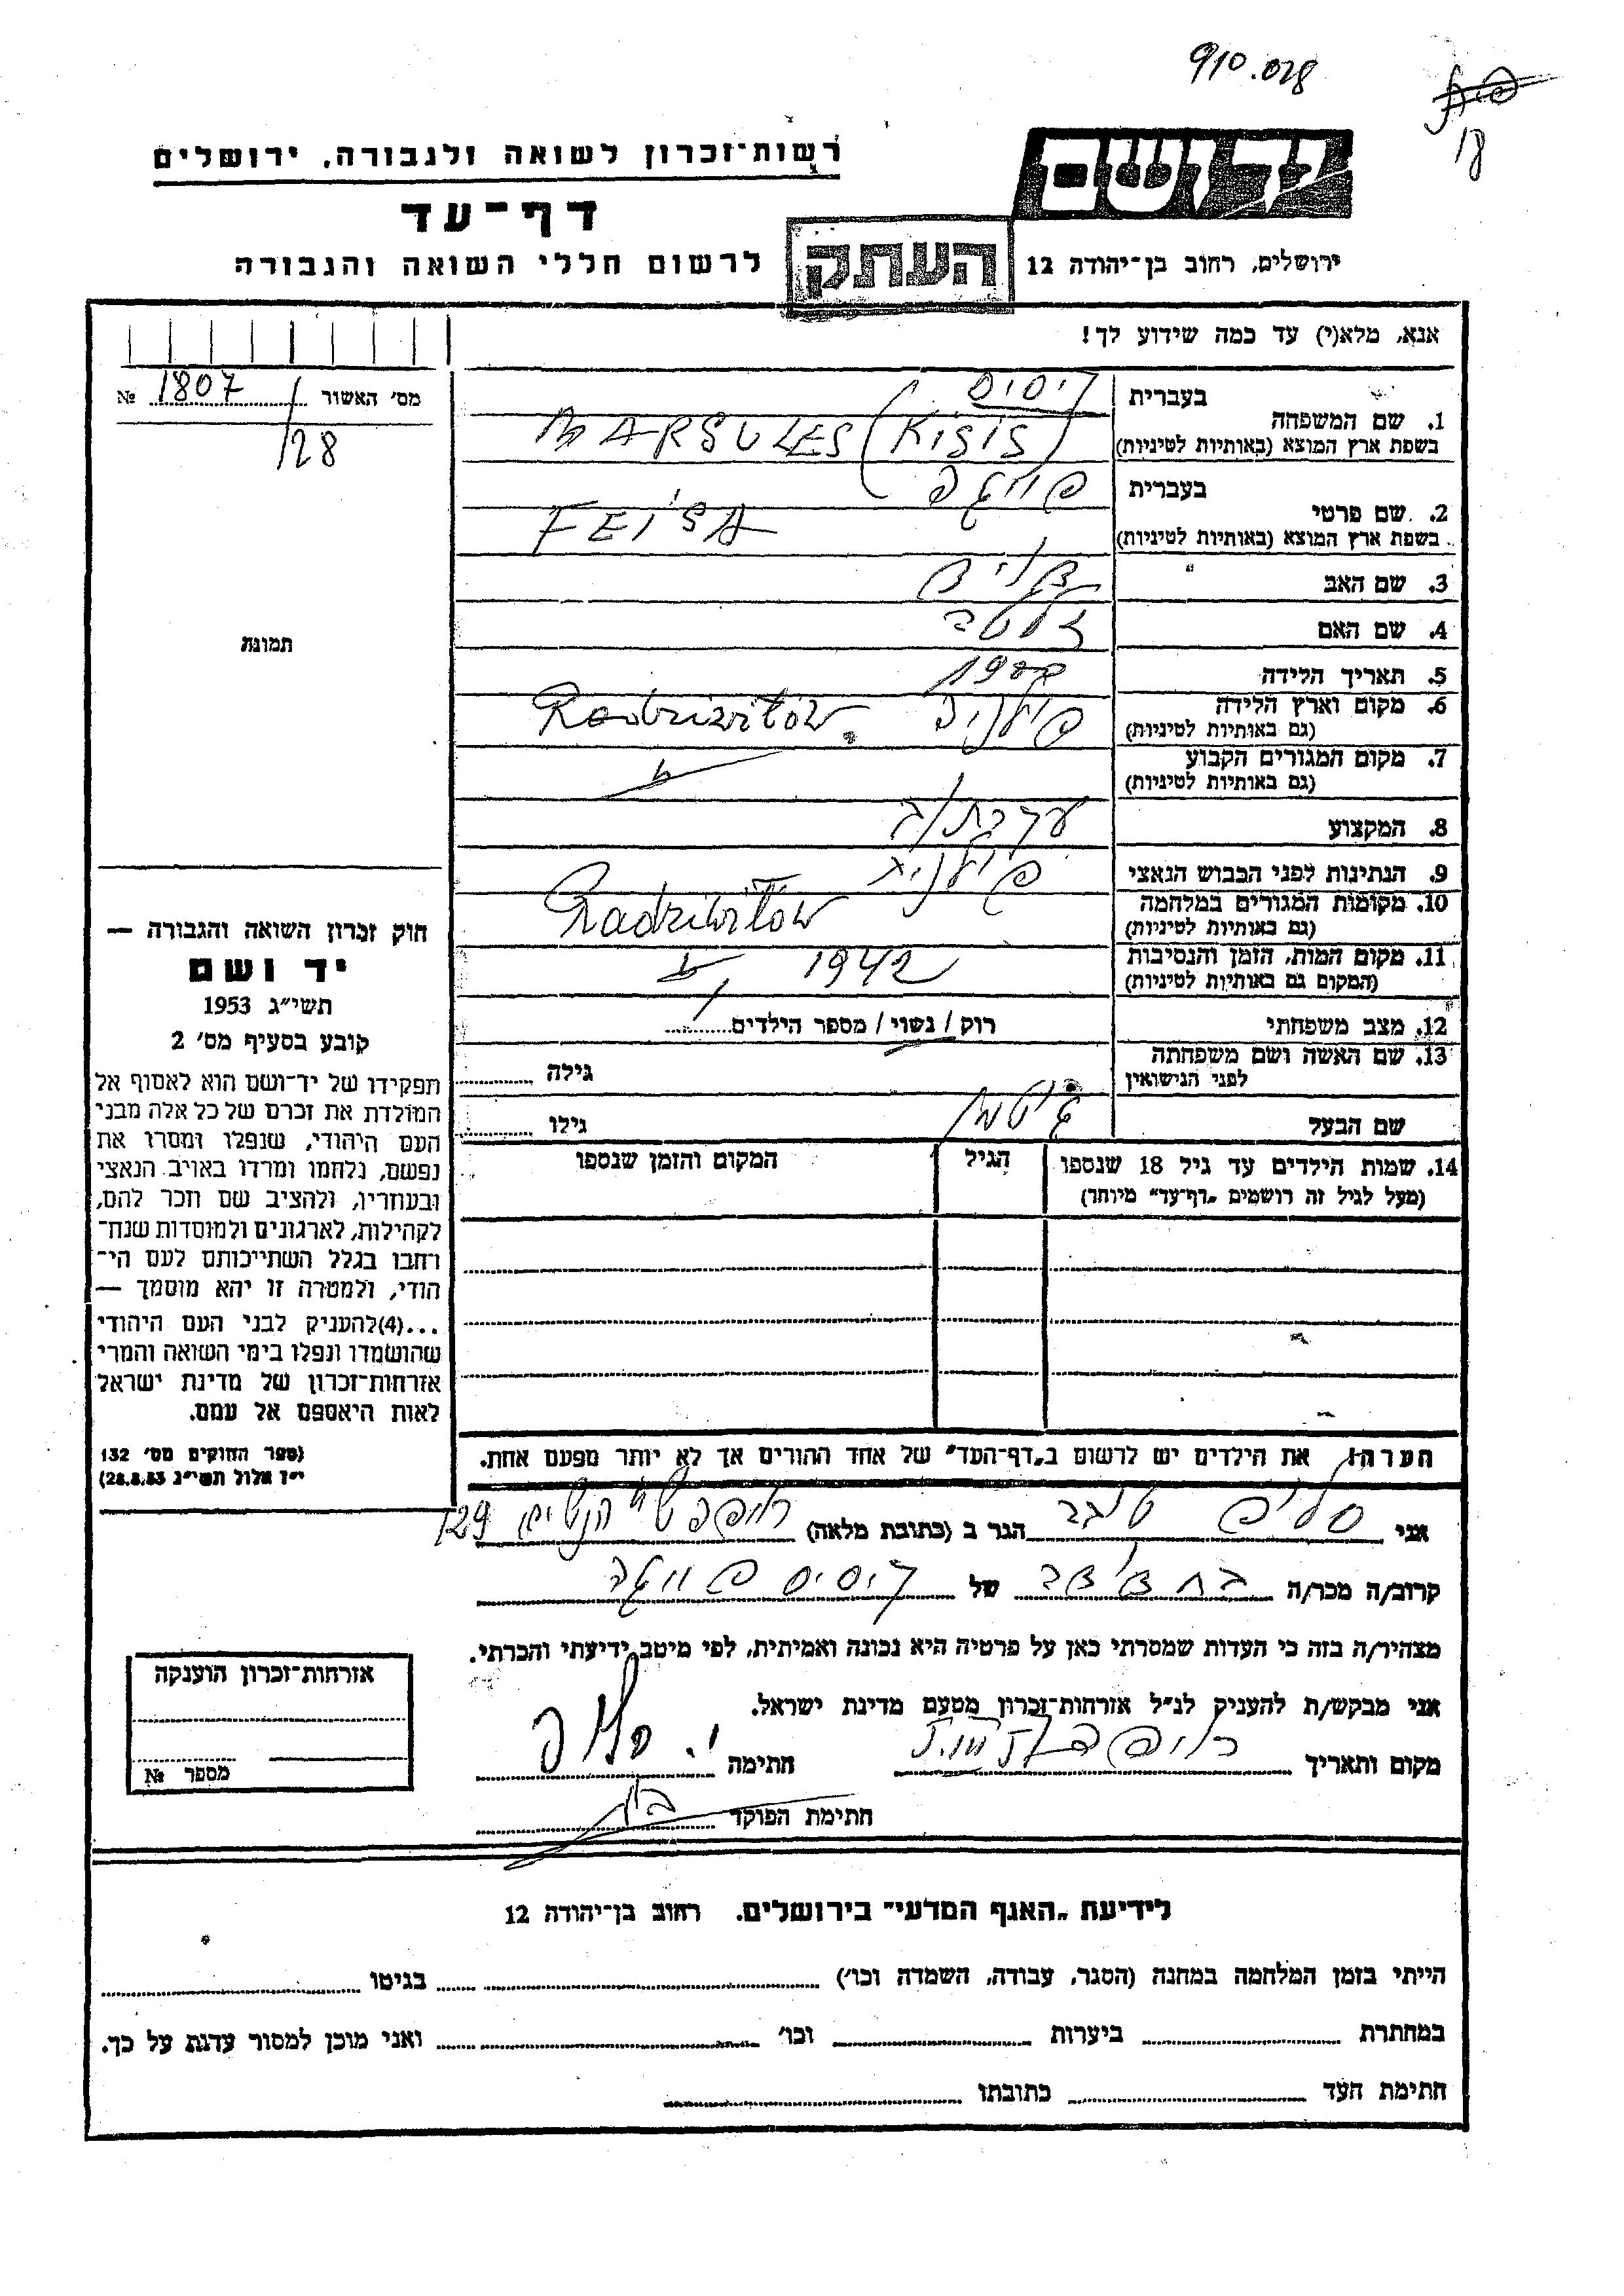 910.028
18
ידושם
רשות־זכרון לשואה ולגבורה, ירושלים
דף־עד
לרשום חללי השואה והגבורה
העתק
ירושלים, רחוב בן־יהודה 12
אנא, מלא(י) עד כמה שידוע לך!
מס׳ האשור 1807 №
/28
תמונה
1. שם המשפחה
בעברית קיסיס
בשפת ארץ המוצא (באותיות לטיניות) MARGULES (KISIS)
2. שם פרטי
בעברית פייגה
בשפת ארץ המוצא (באותיות לטיניות) FEIGA
3. שם האב
4. שם האם
5. תאריך הלידה 1900
6. מקום וארץ הלידה פולניה Radziwiłłów
(גם באותיות לטיניות)
7. מקום המגורים הקבוע
(גם באותיות לטיניות)
8. המקצוע עקרת/ב
9. הנתינות לפני הכבוש הנאצי פולנית
10. מקומות המגורים במלחמה Radziwiłłów
(גם באותיות לטיניות)
11. מקום המות, הזמן והנסיבות 1942
(המקום גם באותיות לטיניות)
12. מצב משפחתי רוק / נשוי / מספר הילדים
13. שם האשה ושם משפחתה
לפני הנישואין
גילה
שם הבעל
גילו
14. שמות הילדים עד גיל 18 שנספו
(מעל לגיל זה רושמים „דף־עד״ מיוחד)
הגיל
המקום והזמן שנספו
הערה! את הילדים יש לרשום ב„דף־העד״ של אחד ההורים אך לא יותר מפעם אחת.
חוק זכרון השואה והגבורה —
יד ושם
תשי״ג 1953
קובע בסעיף מס׳ 2
תפקידו של יד־ושם הוא לאסוף אל
המולדת את זכרם של כל אלה מבני
העם היהודי, שנפלו ומסרו את
נפשם, נלחמו ומרדו באויב הנאצי
ובעוזריו, ולהציב שם וזכר להם,
לקהילות, לארגונים ולמוסדות שנח־
רחבו בגלל השתייכותם לעם הי־
הודי, ולמטרה זו יהא מוסמך —
...(4)להעניק לבני העם היהודי
שהושמדו ונפלו בימי השואה והמרי
אזרחות־זכרון של מדינת ישראל
לאות היאספם אל עמם.
(ספר החוקים מס׳ 132
י״ז אלול תשי״ג 28.8.53)
אני הגר ב (כתובת מלאה) 129
קרוב/ה מכר/ה של קיסיס פייגה
מצהיר/ה בזה כי העדות שמסרתי כאן על פרטיה היא נכונה ואמיתית, לפי מיטב ידיעתי והכרתי.
אני מבקש/ת להעניק לנ״ל אזרחות־זכרון מטעם מדינת ישראל.
מקום ותאריך חתימה
חתימת הפוקד
אזרחות־זכרון הוענקה
מספר №
לידיעת „האגף המדעי״ בירושלים. רחוב בן־יהודה 12
הייתי בזמן המלחמה במחנה (הסגר, עבודה, השמדה וכו׳) בגיטו
במחתרת ביערות וכו׳ ואני מוכן למסור עדות על כך.
חתימת העד כתובתו